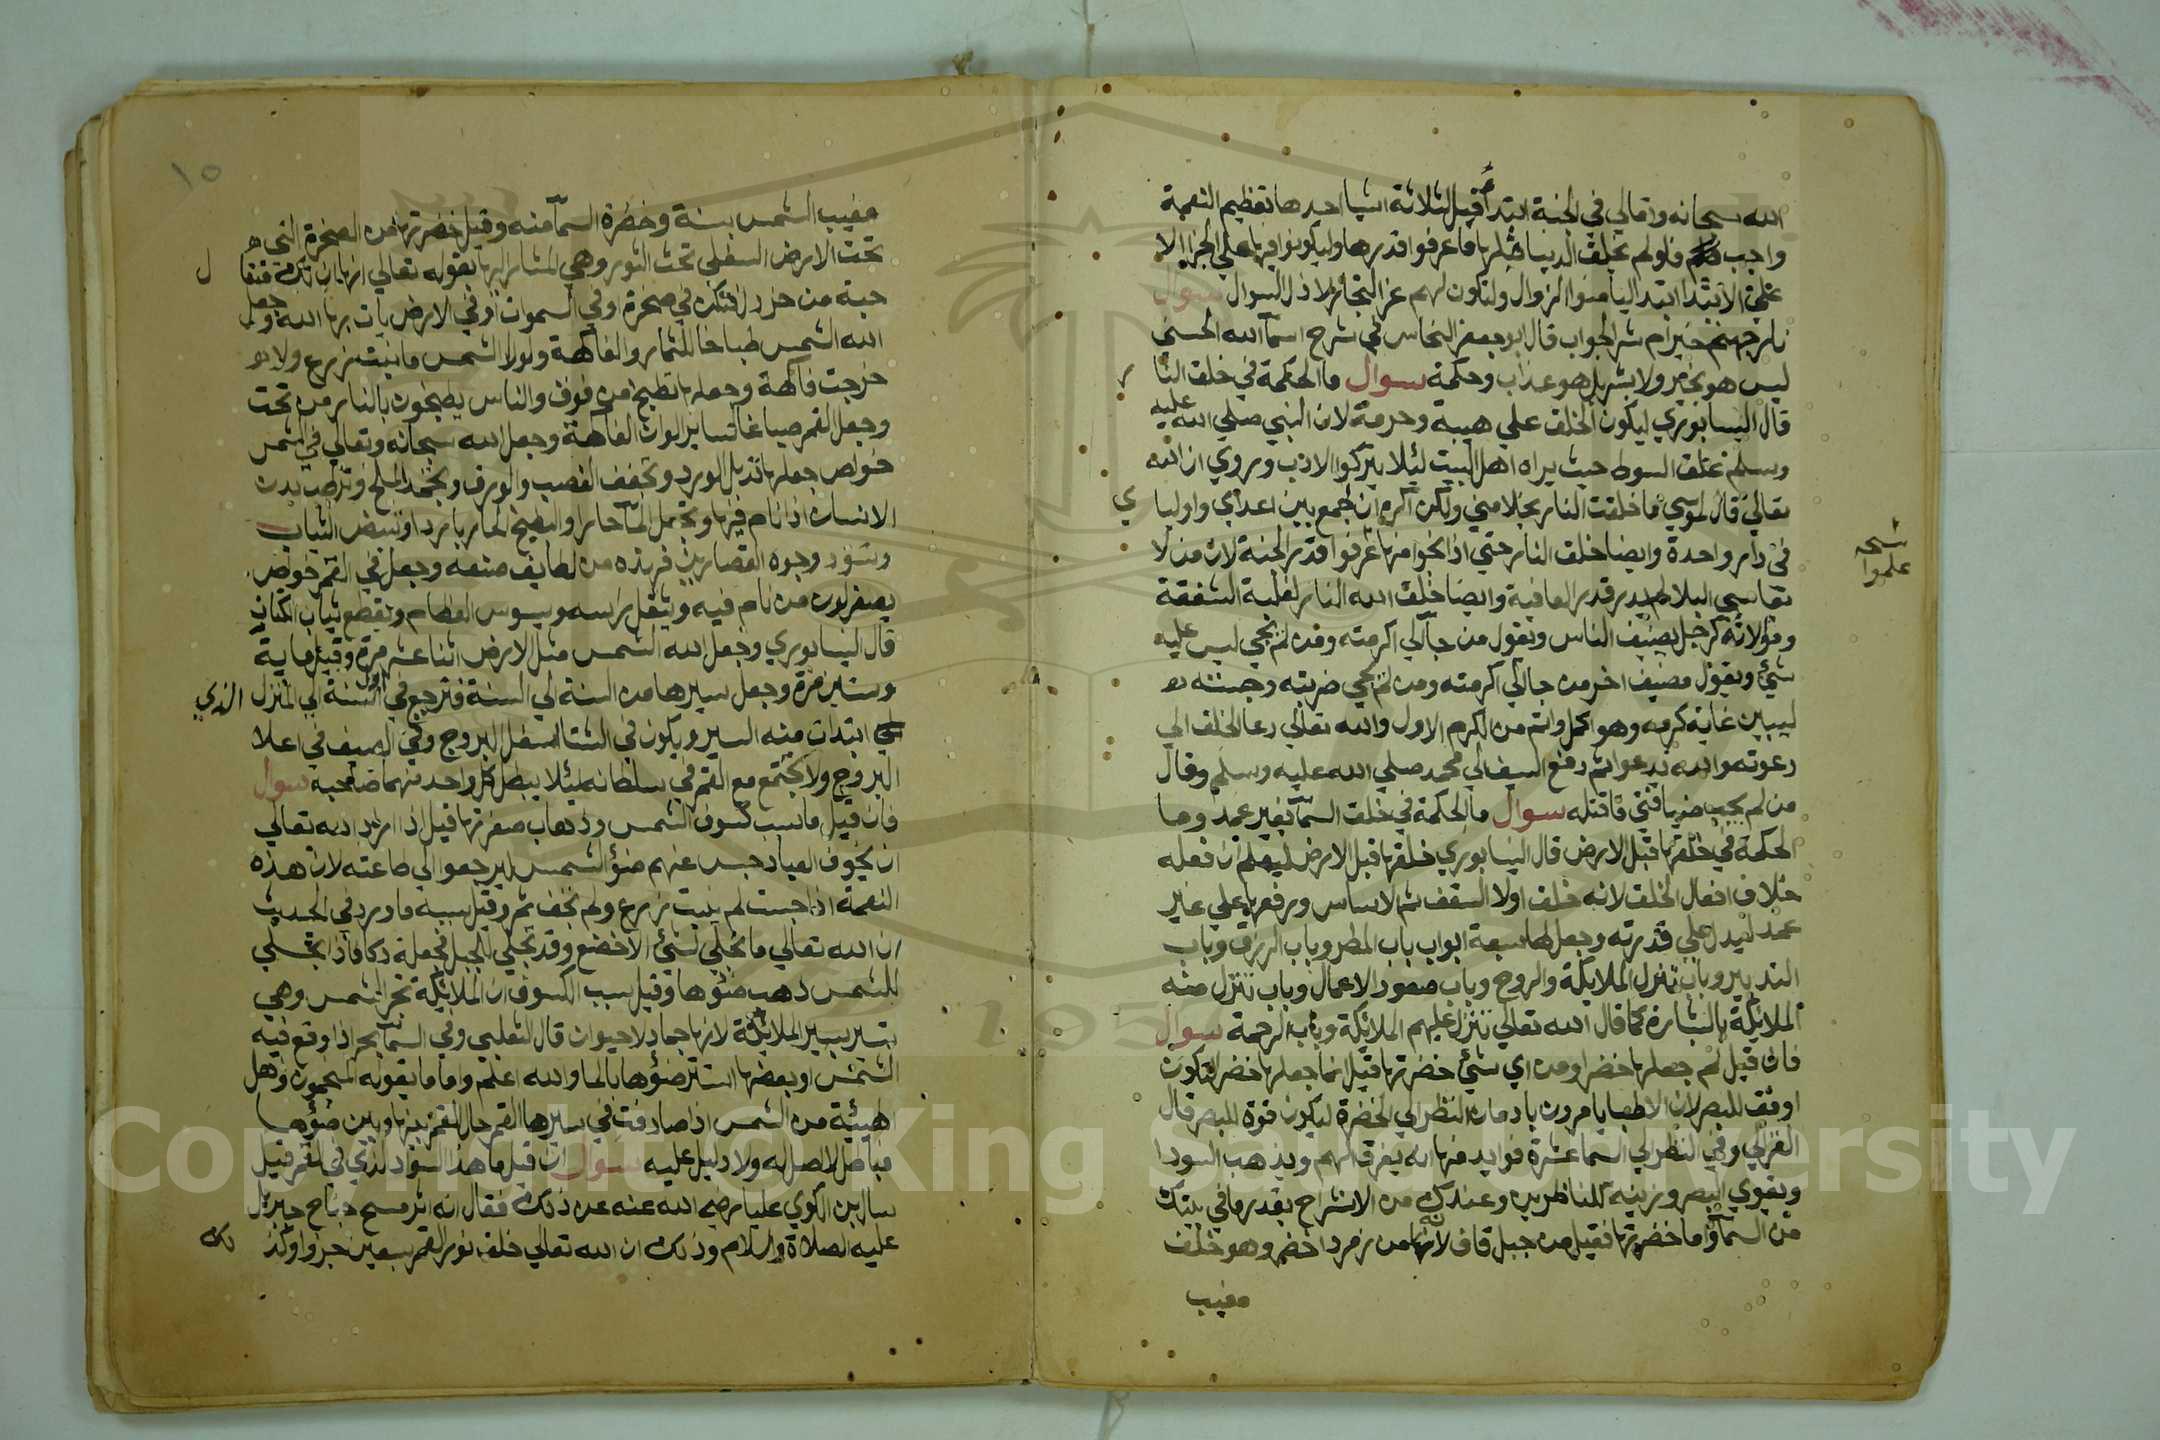 الله سبحانه وتعالي في الجنة ابتدأ قيل لثلاثة اشيا احدها تعظيم النعمة
واجب فلو لم يخلق الدنيا مثلها ما عرفوا قدرها وليكونوا فيها علي الجزا لا
علي الابتدا ليامنوا الزوال وليكون لهم عز التجار لا ذل السوال سوال
نار جهنم خير ام شر الجواب قال ابو جعفر النحاس في شرح اسمآ الله الحسني
ليس هو بخير ولا بشر بل هو عذاب وحكمة سوال ما الحكمة في خلق النار
قال النيسابوري ليكون الخلق علي هيبة وحرمة لان النبي صلي الله عليه
وسلم علق السوط حيث يراه اهل البيت ليلا يتركوا الادب وروي ان الله
تعالي قال لموسي ما خلقت النار بخلا مني ولكن اكره ان اجمع بين اعداي واولياي
في دار واحدة وايضا خلق النار حتي اذا نجوا منها عرفوا قدر الجنة لان من لا
نسخه
علموا
يقاسي البلا لم يدر قدر العافية وايضا خلق الله النار لغلبة الشفقة
ومولاته كرجل يضيف الناس ويقول من جا الي اكرمته ومن لم يجي ليس عليه
شي ويقول مضيف اخر من جا الي اكرمته ومن لم يجي ضربته وحبسته
ليبين غاية كرمه وهو اكمل واتم من الكرم الاول والله تعالي دعا الخلق الي
دعوته والله يدعوا ثم دفع السيف الي محمد صلي الله عليه وسلم وقال
من لم يجب ضيافتي فاقتله سوال ما الحكمة في خلق السمآ بغير عمد وما
الحكمة في خلقها قبل الارض قال النيسابوري خلقها قبل الارض ليعلم ان فعله
خلاف افعال الخلق لانه خلق اولا السقف ثم الاساس ورفعها علي غير
عمد ليدل علي قدرته وجعل لها سبعة ابواب باب المطر وباب الرزق وباب
التدبير وباب تنزل الملايكة والروح وباب صعود الاعمال وباب تنزل منه
الملايكة بالبشارة كما قال الله تعالي تتنزل عليهم الملايكة وباب الرحمة سوال
فان قيل لم جعلها خضرا ومن اي شي خضرتها قيل انما جعلها خضرا لتكون
اوفق للبصر لان الاطبا يامرون بادمان النظر الي الخضرة ليكون قوة للبصر قال
الغزالي وفي النظر الي السما عشرة فوايد منها انه يفرق الهم ويذهب السودا
ويقوي البصر وزينة للناظرين وعندك من الانشراح بقدر ما في بيتك
من السمآ واما خضرتها فقيل من جبل قاف لانه من زمرد اخضر وهو خلف
مغيب
١٥
مغيب الشمس بسنة وخضرة السمآ منه وقيل خضرتها من الصخرة التي
تحت الارض السفلي تحت الثور وهي المشار اليها بقوله تعالي انها ان تك مثقال
حبة من خردل فتكن في صخرة او في السموات او في الارض يات بها الله وجعل
الله الشمس طباخا للثمار والفاكهة ولولا الشمس ما نبت زرع ولا
خرجت فاكهة وجعلها تطبخ من فوق والناس يطبخون بالنار من تحت
وجعل القمر صباغا لساير الوان الفاكهة وجعل الله سبحانه وتعالي في الشمس
خواص جعلها تذبل الورد وتجفف القصب والورق وتجمد الملح وترطب بدن
الانسان اذا نام فيها وتجعل المآ حارا والبطيخ الحار باردا وتبيض الثياب
وتسود وجوه القصارين فهذه من لطايف صنعه وجعل في القمر خواص
يصفر لون من نام فيه ويثقل راسه ويسوس العظام ويقطع ثياب الكتان
قال النيسابوري وجعل الله الشمس مثل الارض اثنا عشر مرة وقيل ماية
وستين مرة وجعل سيرها من السنة الي السنة فترجع في اول السنة الي المنزل الذي
ابتدات منه السير ويكون في الشتا اسفل البروج وفي الصيف في اعلا
البروج ولا يجتمع مع القمر في سلطانه ليلا يبطل كل واحد منهما صاحبه سوال
فان قيل ما سبب كسوف الشمس وذهاب صفرتها قيل اذا اراد الله تعالي
ان يخوف العباد حبس عنهم ضوء الشمس ليرجعوا الي طاعته لان هذه
النعمة اذا حبست لم ينبت زرع ولم يجف ثمر وقيل سببه ما ورد في الحديث
ان الله تعالي ما تجلي لشي الا خضع وقد تجلي للجبل فجعله دكا فاذا تجلي
للشمس ذهب ضوءها وقيل سبب الكسوف ان الملايكة تجر الشمس وهي
تسير بسير الملايكة لانها جماد لا حيوان قال الثعلبي وفي السمآ بحر اذا وقع فيه
الشمس او بعضها استتر ضوءها بالما والله اعلم واما ما يقوله المنجمون واهل
الهيئة من الشمس اذا صادفت في سيرها القمر حال القمر بينها وبين ضوءها
فباطل لا اصل له ولا دليل عليه سوال ان قيل ما هذا السواد الذي في القمر قيل
سال ابن الكوي عليا رضي الله عنه عن ذلك فقال انه اثر مسح جناح جبريل
عليه الصلاة والسلام وذلك ان الله تعالي خلق نور القمر سبعين جزوا وكذلك
Copyright © King Saud University
1957